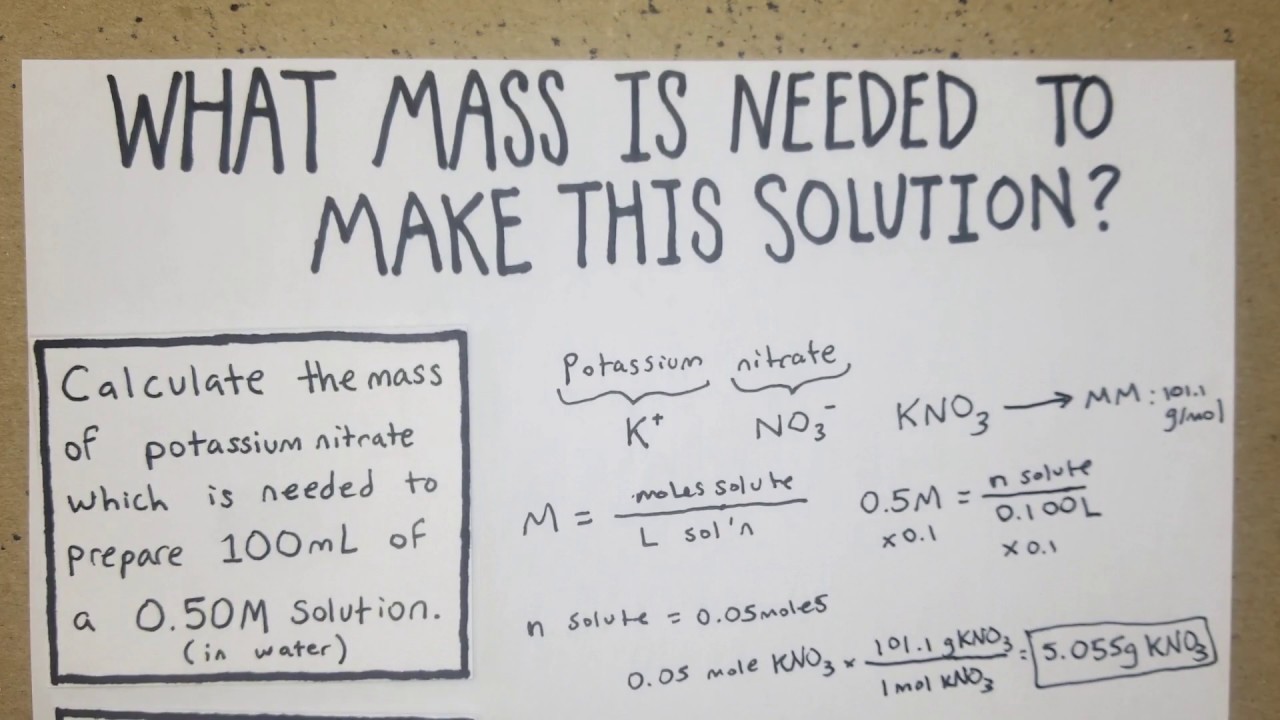 WHAT MASS IS NEEDED TO
MAKE THIS SOLUTION?
Calculate the mass
of potassium nitrate
which is needed to
prepare 100mL of
a 0.50M Solution.
(in water)
Potassium nitrate
K⁺ NO₃⁻
KNO₃ → MM: 101.1
g/mol
M = moles solute
L sol'n
0.5M = n solute
0.100L
x0.1 x0.1
n solute = 0.05moles
0.05 mole KNO₃ x 101.1 gKNO₃ = 5.055g KNO₃
1mol KNO₃